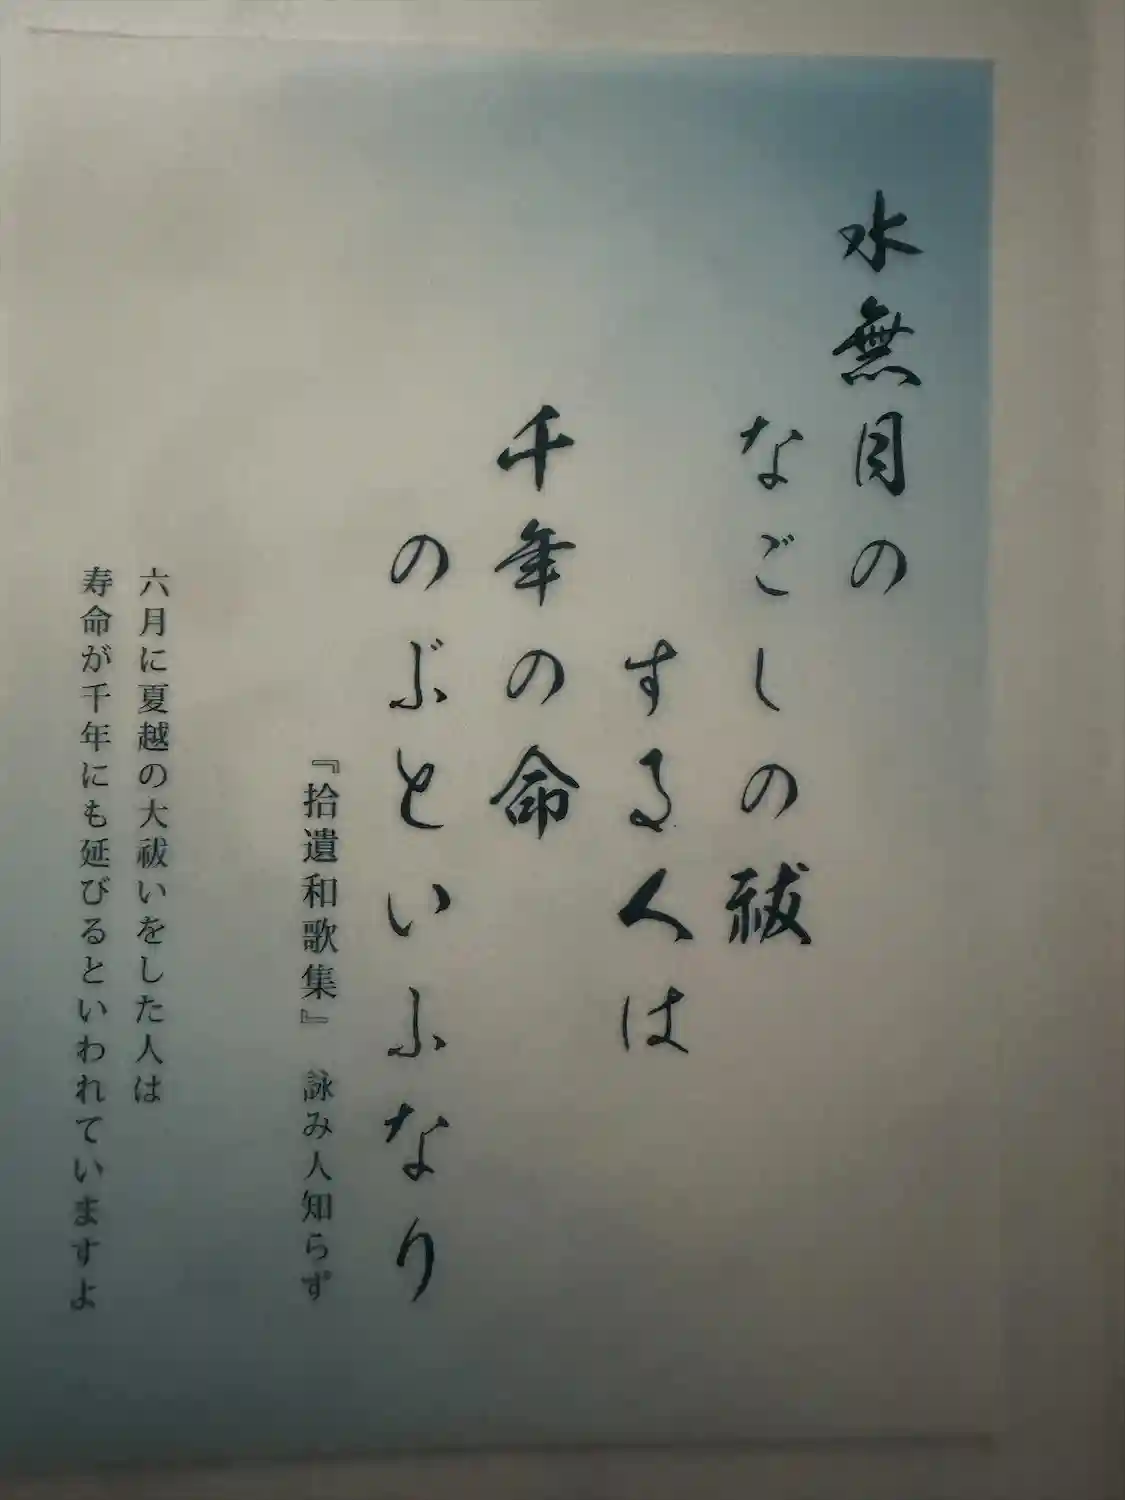 水無月の
なごしの祓
する人は
千年の命
のぶといふなり
『拾遺和歌集』 詠み人知らず
六月に夏越の大祓いをした人は
寿命が千年にも延びるといわれていますよ